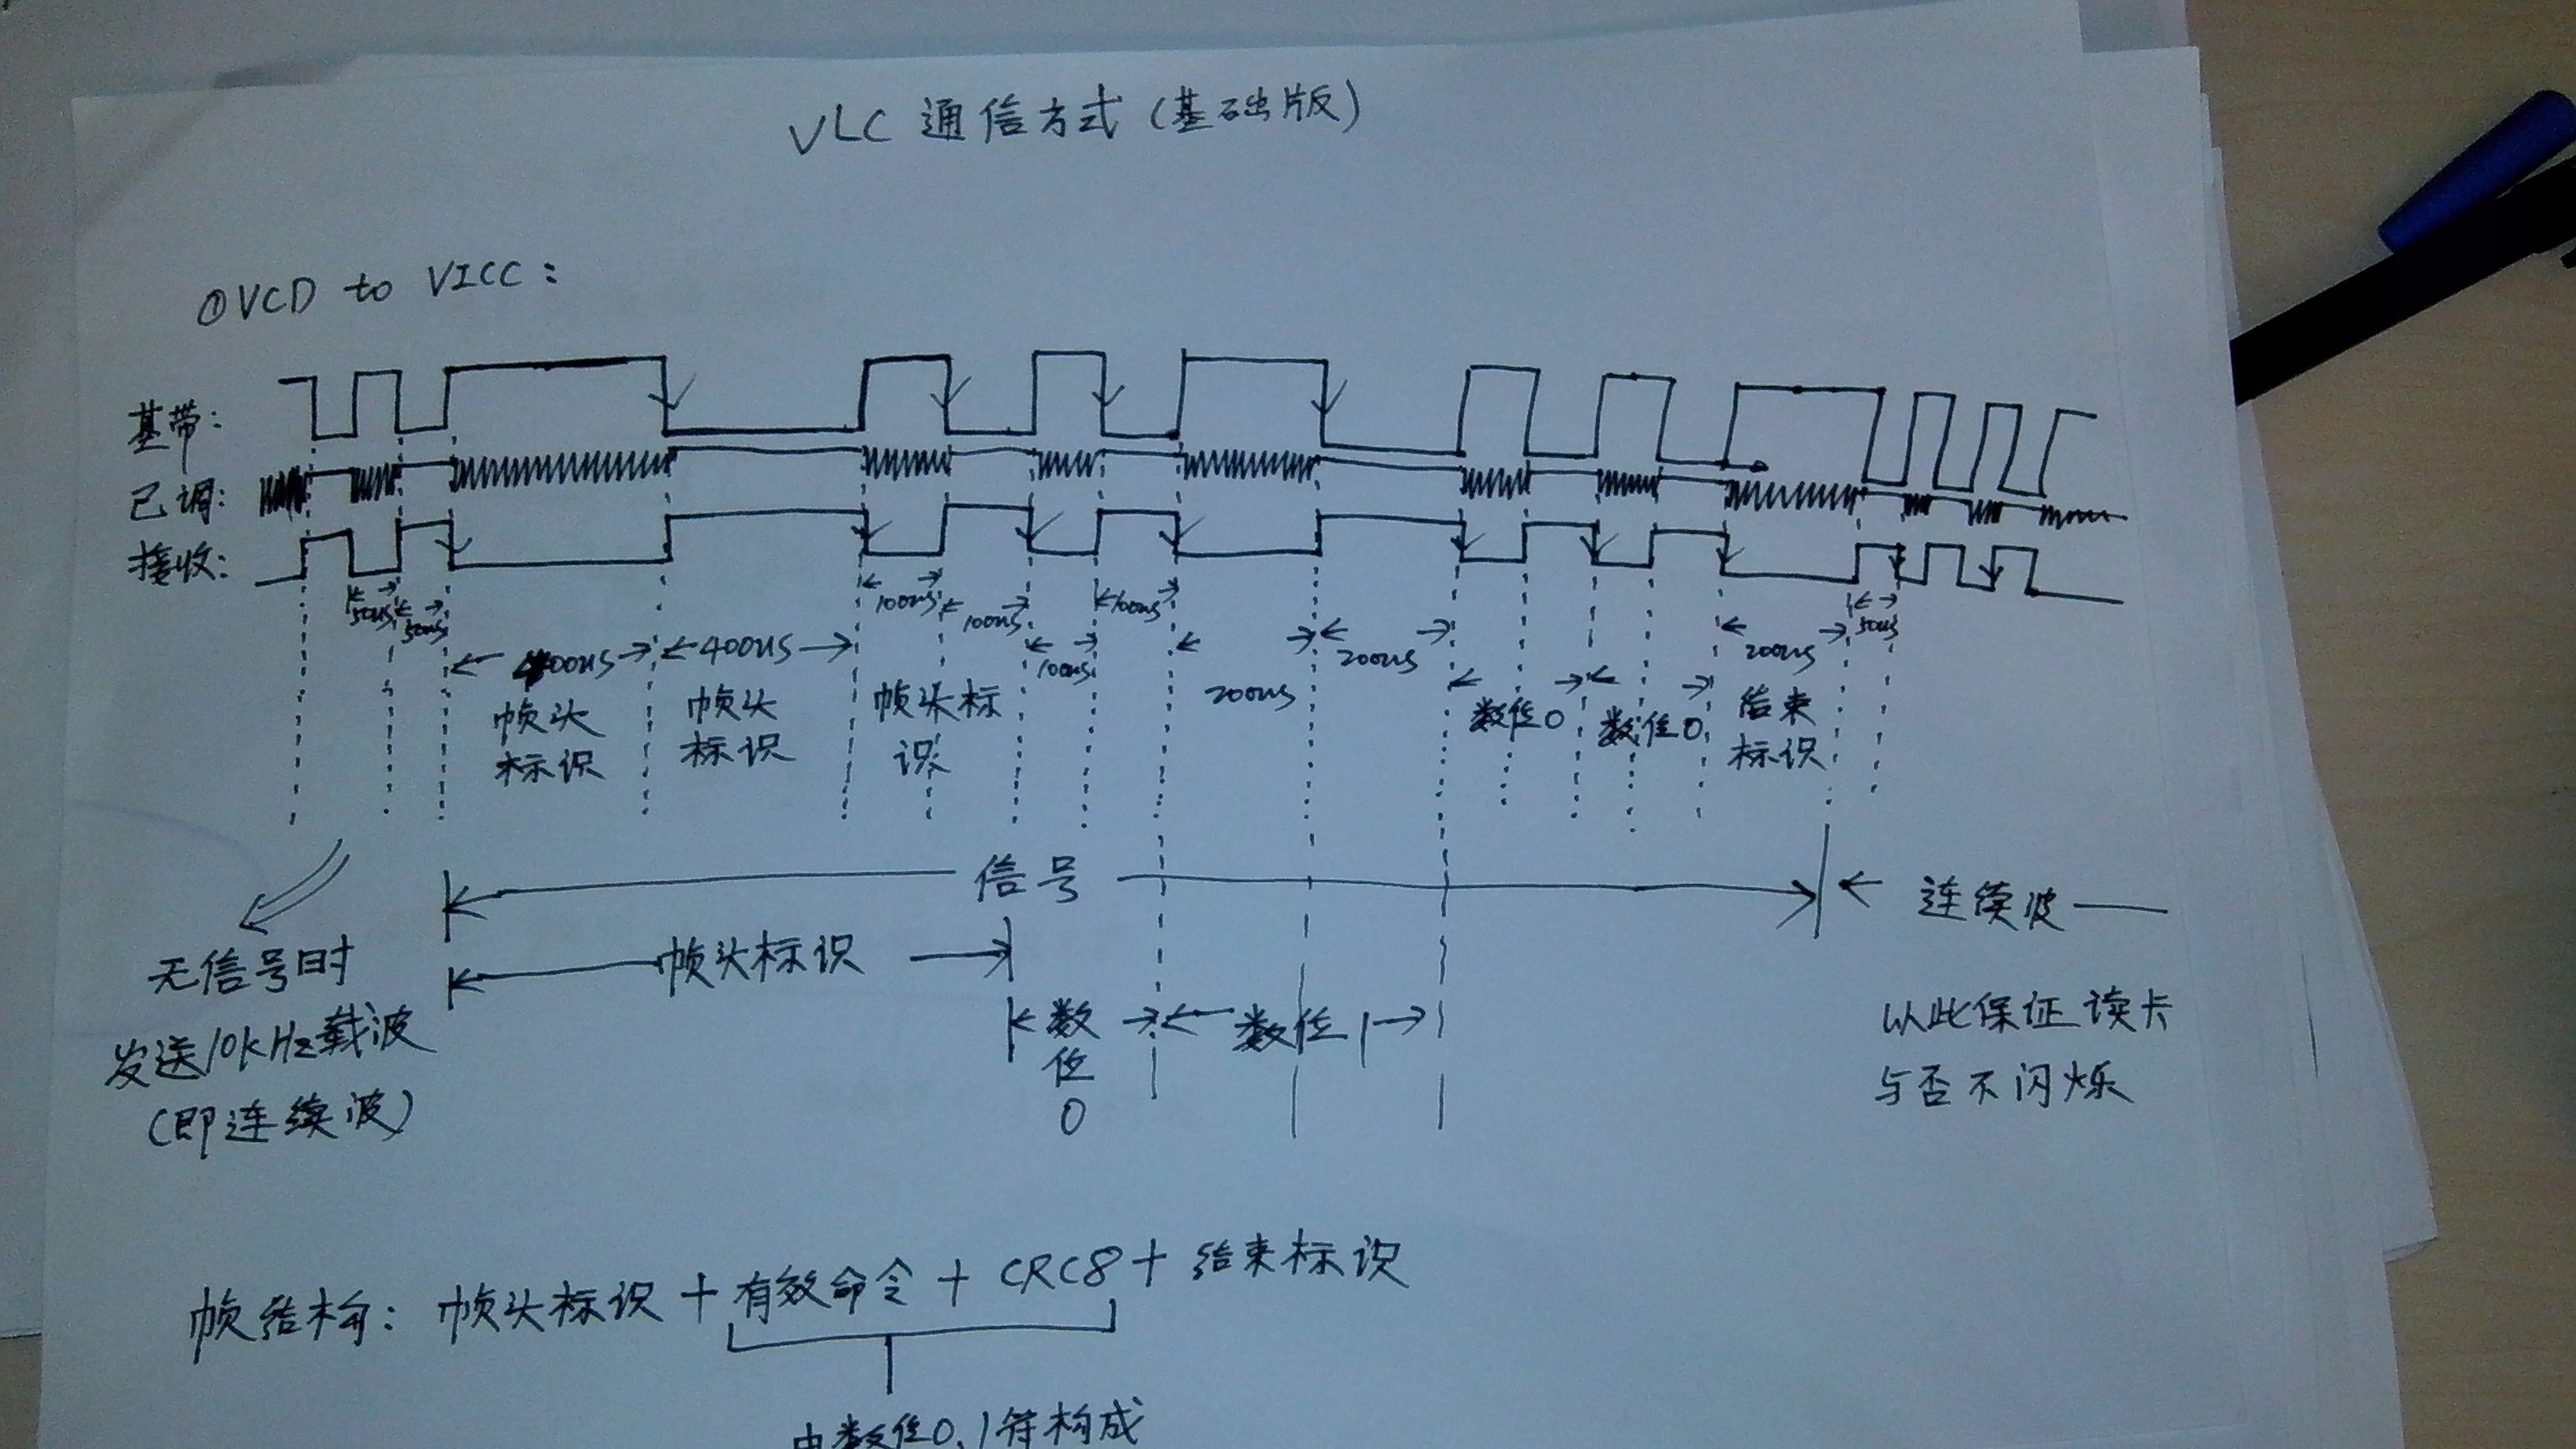 VLC 通信方式(基础版)
①VCD to VICC:
基带:
已调:
接收:
50us 50us 100us 100us 100us 100us 200us 200us 200us 50us
400us 400us
帧头标识 帧头标识 帧头标识 数位0 数位0 结束标识
信号 连续波
帧头标识
数位0 数位1
无信号时
发送10kHz载波
(即连续波)
以此保证读卡
与否不闪烁
帧结构: 帧头标识+有效命令+CRC8+结束标识
由数位0,1符构成